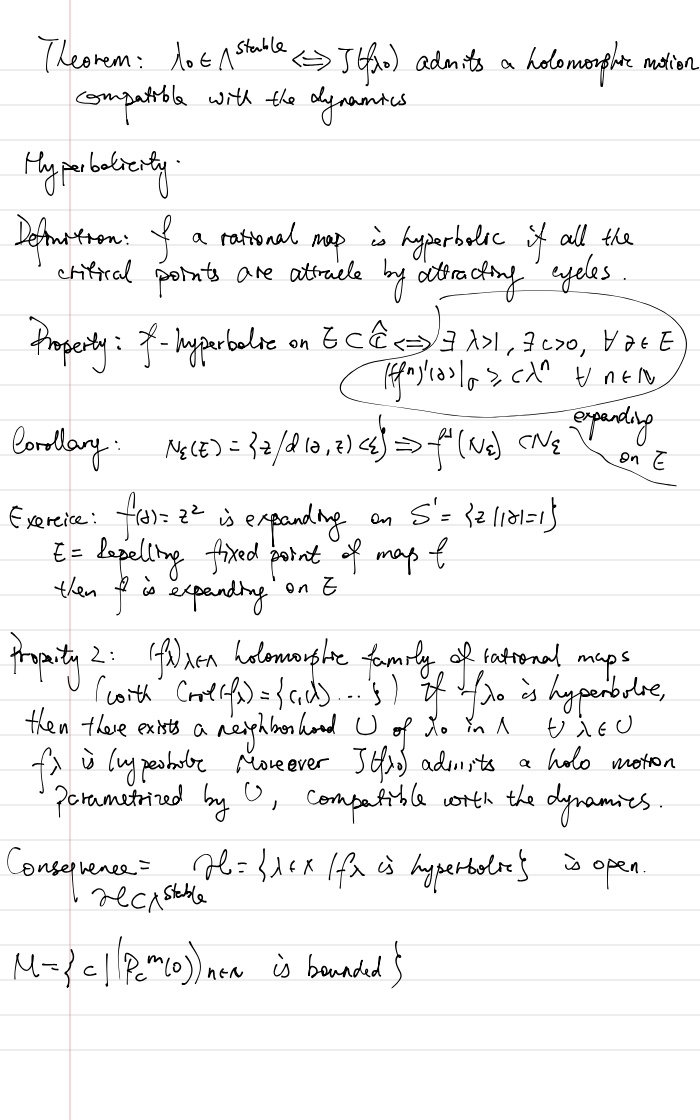 Theorem: λ₀ ∈ Λ^stable ⟺ J(fλ₀) admits a holomorphic motion
compatible with the dynamics
Hyperbolicity.
Definition: f a rational map is hyperbolic if all the
critical points are attracle by attracting cycles.
Property: f-hyperbolic on E ⊂ Ĉ ⟺ ∃ λ>1, ∃ c>0, ∀ z ∈ E
|(fⁿ)'(z)|σ ≥ cλⁿ ∀ n ∈ ℕ
expanding
on E
Corollary: Nε(E) = {z / d(z, z) < ε} ⟹ f⁻¹(Nε) ⊂ Nε
Exercice: f(z) = z² is expanding on S¹ = {z / |z| = 1}
E = Repelling fixed point of map f
then f is expanding on E
Property 2: (fλ)λ∈Λ holomorphic family of rational maps
(with Crit(fλ) = {c₁(λ) ... }) If fλ₀ is hyperbolic,
then there exists a neighborhood U of λ₀ in Λ ∀ λ ∈ U
fλ is hyperbolic Moreover J(fλ₀) admits a holo motion
parametrized by U, compatible with the dynamics.
Consequence = ℋ = {λ ∈ Λ / fλ is hyperbolic} is open.
ℋ ⊂ Λ^stable
M = {c | (P_c^m(0))n∈ℕ is bounded}